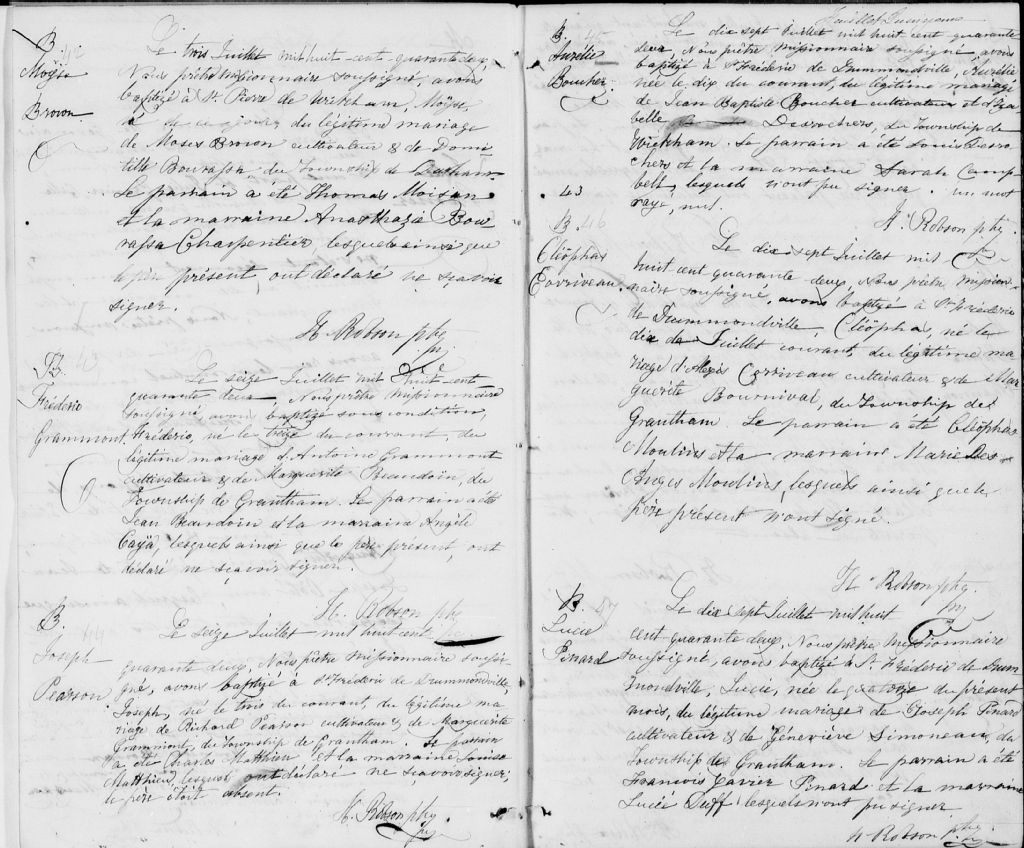 B. 42
Moÿse
Brown
Le trois Juillet mil huit-cent-quarante deux
Nous prêtre Missionnaire soussigné, avons
baptizé à St. Pierre de Wickham, Moÿse,
né ce jour, du légitime mariage
de Moses Brown cultivateur & de Domi
tille Bourassa du Township de Durham.
Le parrain a été Thomas Moisan
et la marraine Anasthazie Bou
rassa Charpentier, lesquels ainsi que
le père présent, ont déclaré ne sçavoir
signer.
H. Robson ptr.
B.
Fréderic
Grammont.
Le seize Juillet mil huit cent
quarante deux, Nous prêtre Missionnaire
soussigné, avons baptizé sous condition,
Fréderic, né le treize du courant, du
légitime mariage d'Antoine Grammont
cultivateur & de Marguerite Beaudoin, du
Township de Grantham. Le parrain a été
Jean Beaudoin et la marraine Angèle
Cayä, lesquels ainsi que le père présent, ont
déclaré ne sçavoir signer.
H. Robson ptr.
B. 44
Joseph
Pearson
Le seize Juillet mil huit cent
quarante deux, Nous prêtre missionnaire soussi
gné, avons baptizé à St Fréderic de Drummondville,
Joseph, né le trois du courant, du légitime ma
riage de Richard Pearson cultivateur & de Marguerite
Grammont, du Township de Grantham. Le parrain
a été Charles Matthieu et la marraine Louise
Matthieu, lesquels ont déclaré ne sçavoir signer;
le père étoit absent.
H. Robson ptr.
B. 45
Aurélie
Boucher
Le dix sept Juillet mil huit cent quarante
deux, Nous prêtre Missionnaire soussigné avons
baptizé à St Fréderic de Drummondville, Aurélie
née le dix du courant, du légitime mariage
de Jean Baptiste Boucher cultivateur et d'Iza
belle Desrochers, du Township de
Wickham. Le parrain a été Louis Desro
chers et la marraine Sarah Camp
bell, lesquels n'ont pu signer. un mot
rayé, nul.
H. Robson ptr.
43
B. 46
Cléöphas
Corriveau.
Le dix sept Juillet mil
huit cent quarante deux, Nous prêtre Mission
naire soussigné, avons baptizé à St Fréderic
de Drummondville, Cléöpha, né le
dix de Juillet courant, du légitime ma
riage d'Alexis Corriveau cultivateur & de Mar
guerite Bournival, du Township de
Grantham. Le parrain a été Cléöphas
Moulins et la marraine Marie Des
Anges Moulins, lesquels ainsi que le
père présent n'ont signé.
H. Robson ptr.
B. 47
Lucie
Pinard
Le dix sept Juillet mil huit
cent quarante deux, Nous prêtre Missionnaire
soussigné, avons baptizé à St. Fréderic de Drum
mondville, Lucie, née le quatorze du présent
mois, du légitime mariage de Joseph Pinard
cultivateur & de Geneviève Simoneau, du
Township de Grantham. Le parrain a été
Francois Xavier Pinard et la marraine
Lucie Duff lesquels n'ont pu signer
H Robson ptr.